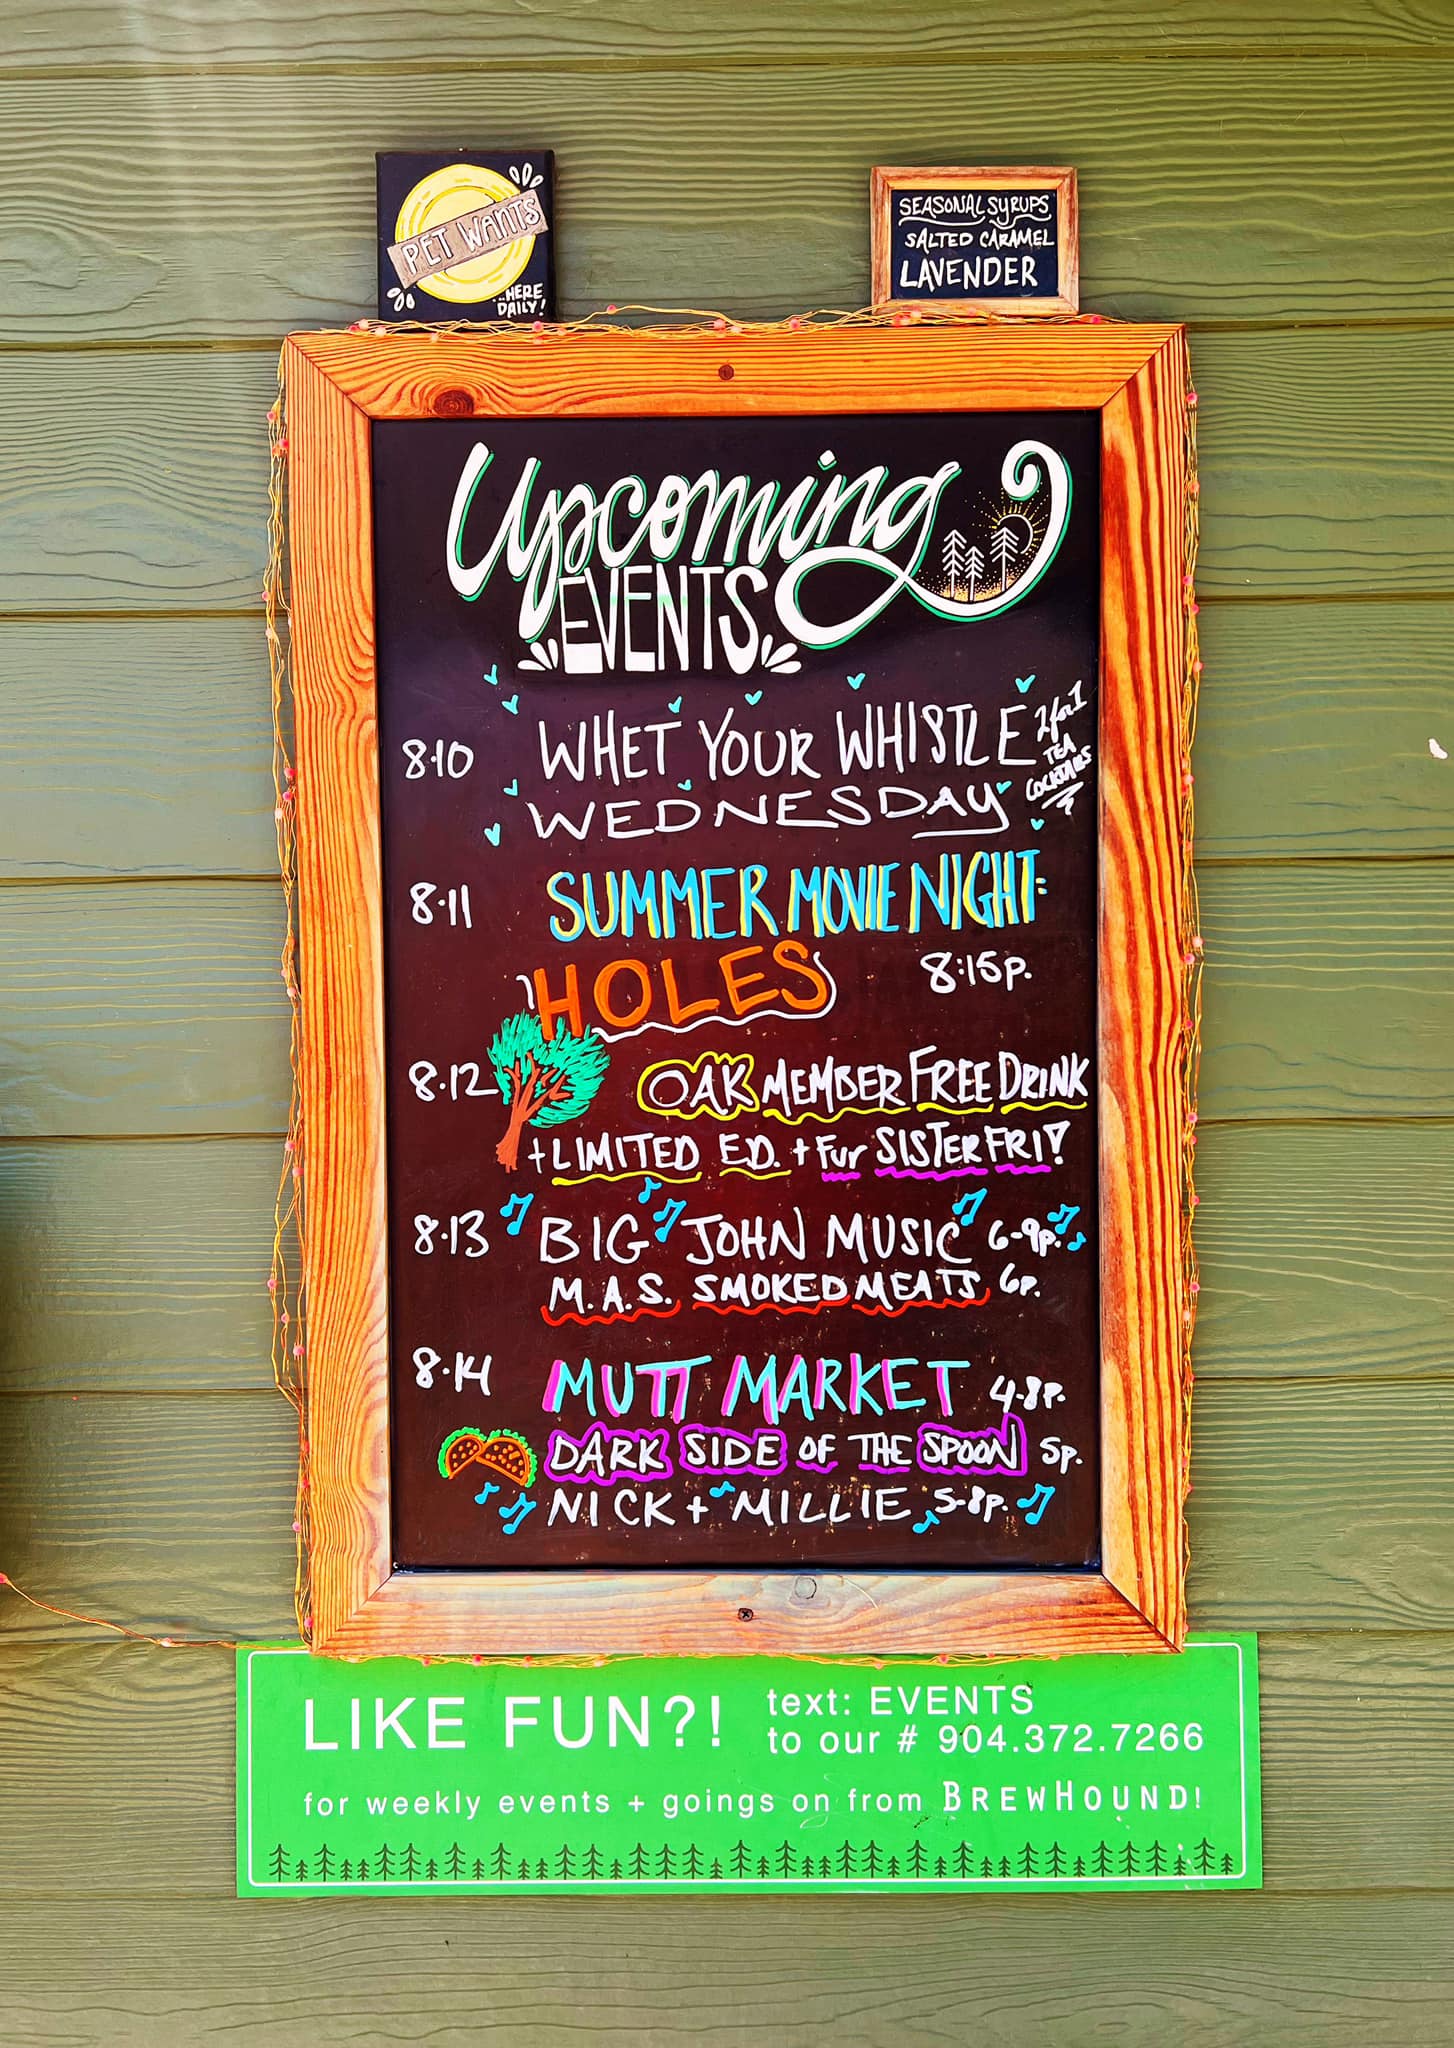 PET WANTS
...HERE
DAILY!
SEASONAL SYRUPS
SALTED CARAMEL
LAVENDER
Upcoming
EVENTS
8.10 WHET YOUR WHISTLE
WEDNESDAY
2 for 1
TEA
COCKTAILS
8.11 SUMMER MOVIE NIGHT:
HOLES 8:15p.
8.12 OAK MEMBER FREE DRINK
+ LIMITED ED. + Fur SISTER FRI!
8.13 BIG JOHN MUSIC 6-9p.
M.A.S. SMOKED MEATS 6p.
8.14 MUTT MARKET 4-8p.
DARK SIDE OF THE SPOON 5p.
NICK + MILLIE 5-8p.
LIKE FUN?! text: EVENTS
to our # 904.372.7266
for weekly events + goings on from BREWHOUND!